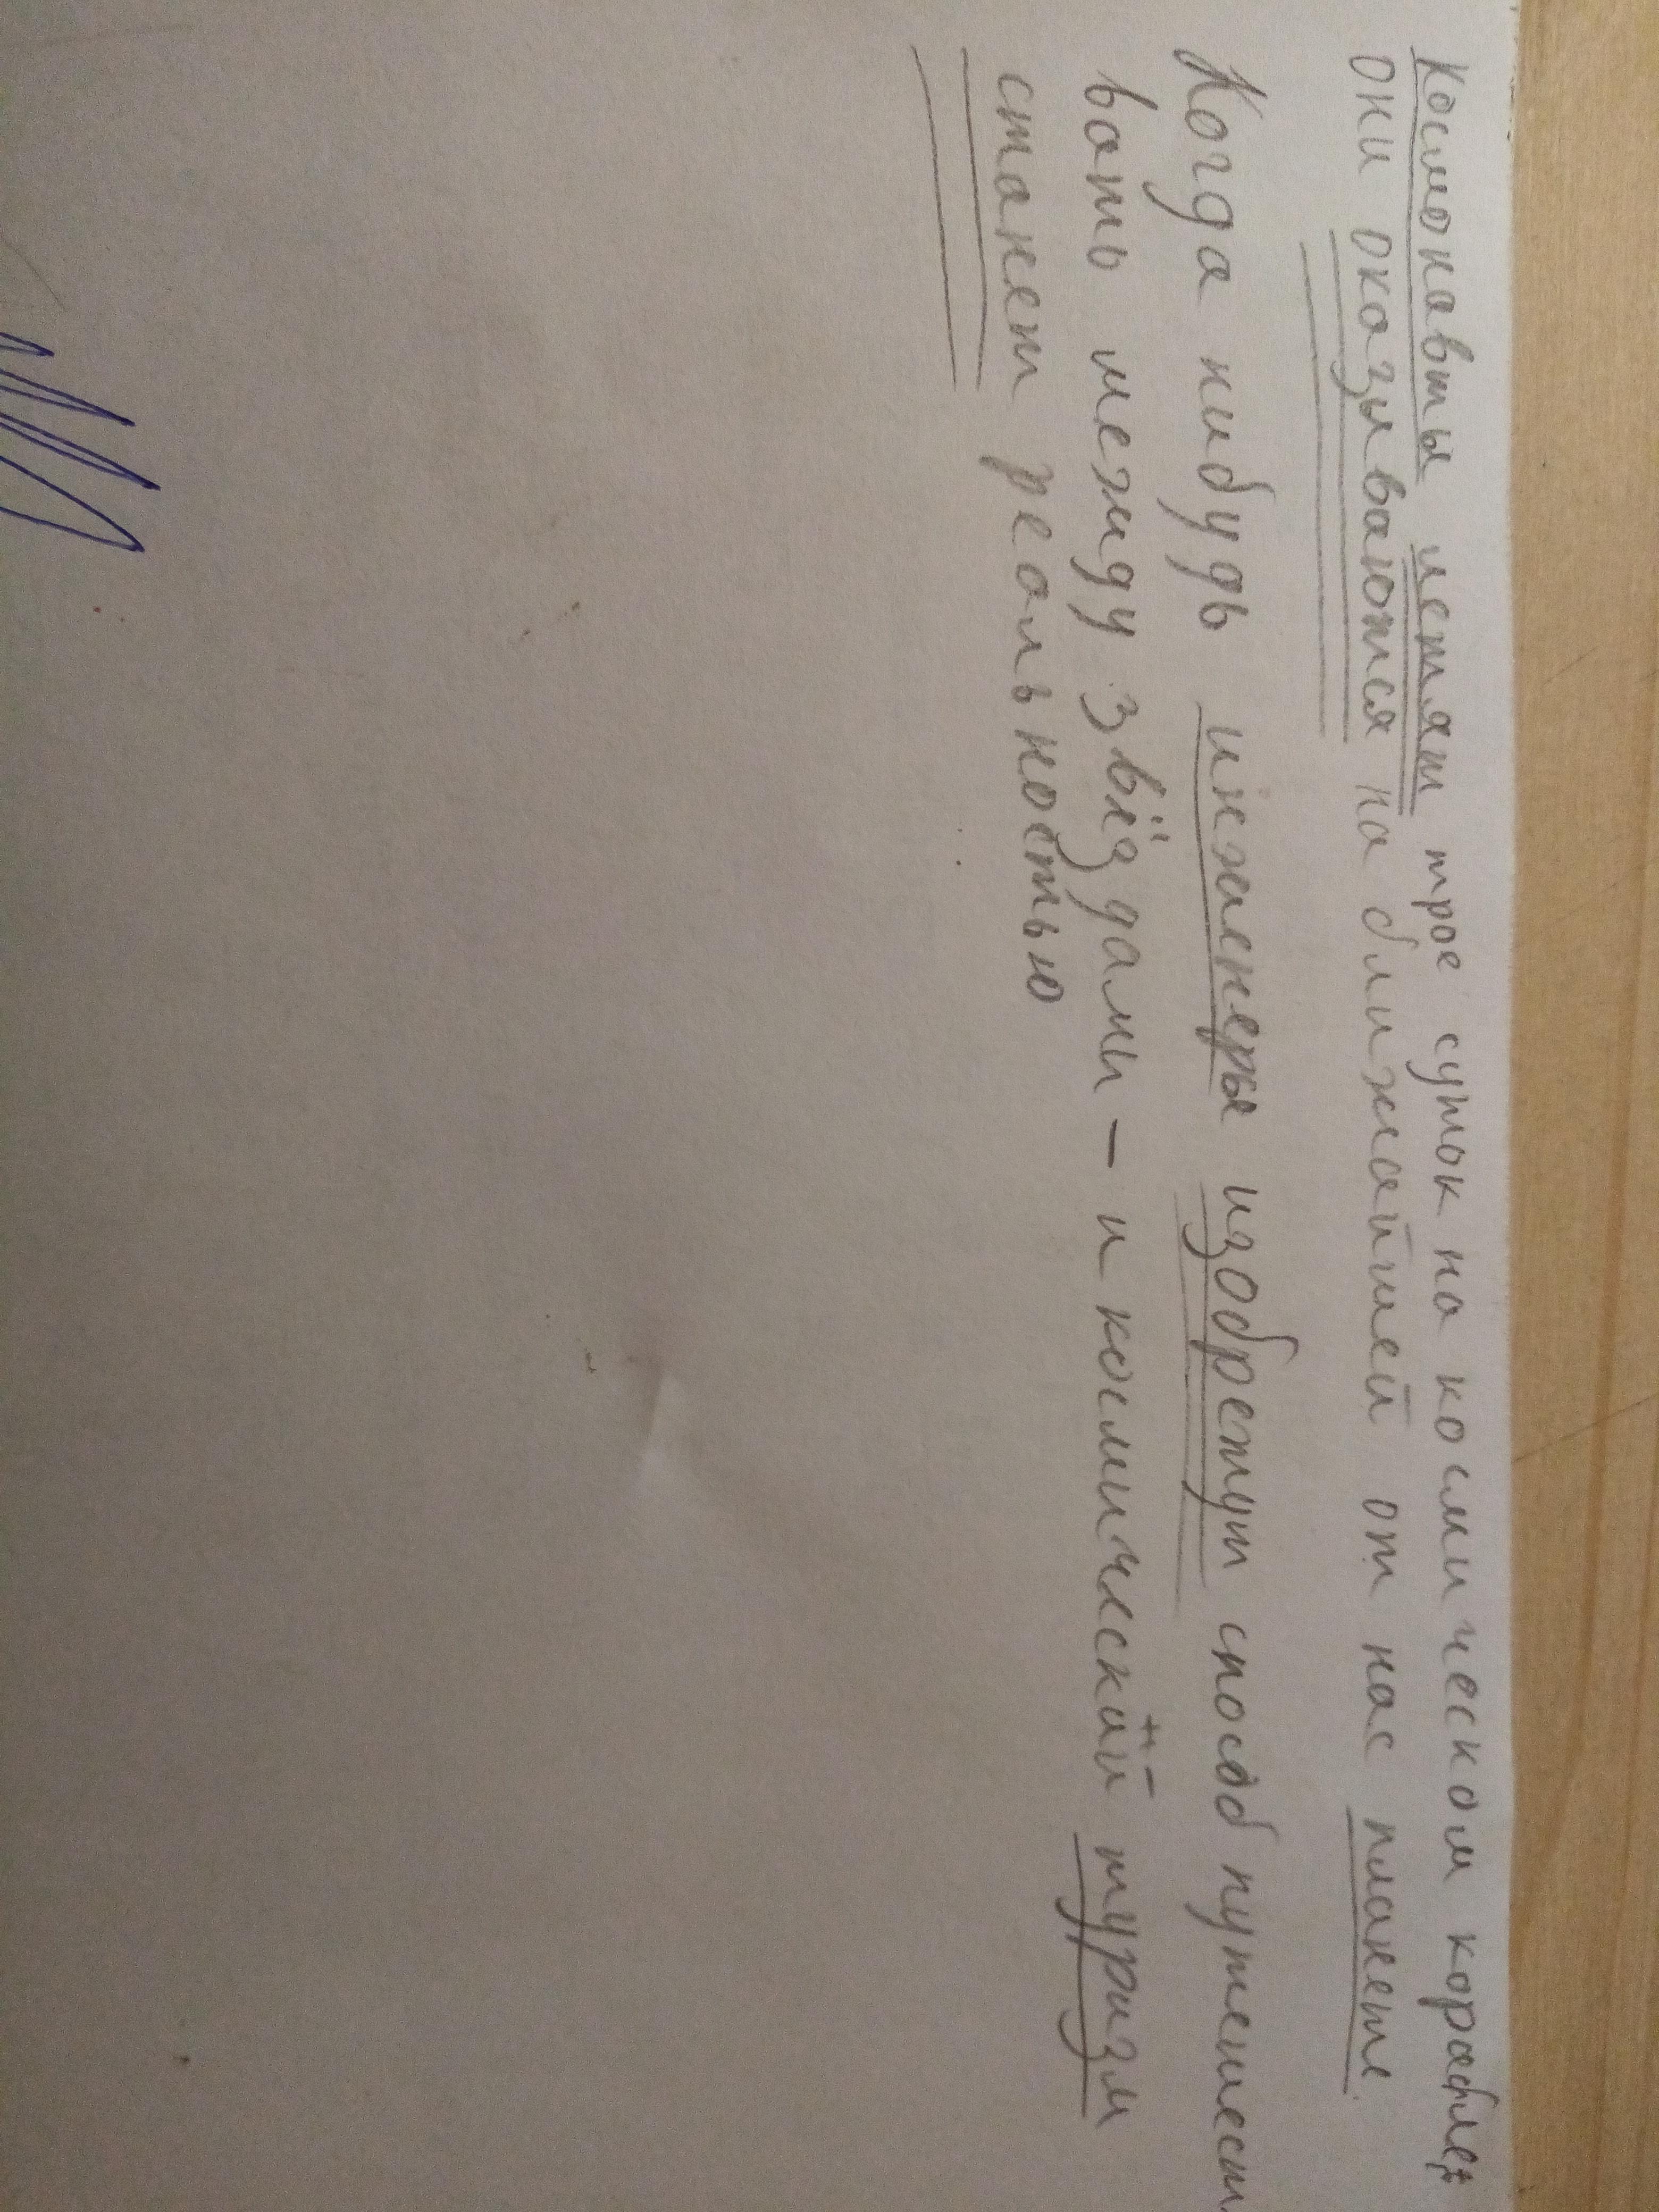 Космонавты летят трое суток на космическом корабле,
они оказываются на ближайшей от нас планете.
Когда нибудь инженеры изобретут способ путешест
вать между звёздами – и космический туризм
станет реальностью